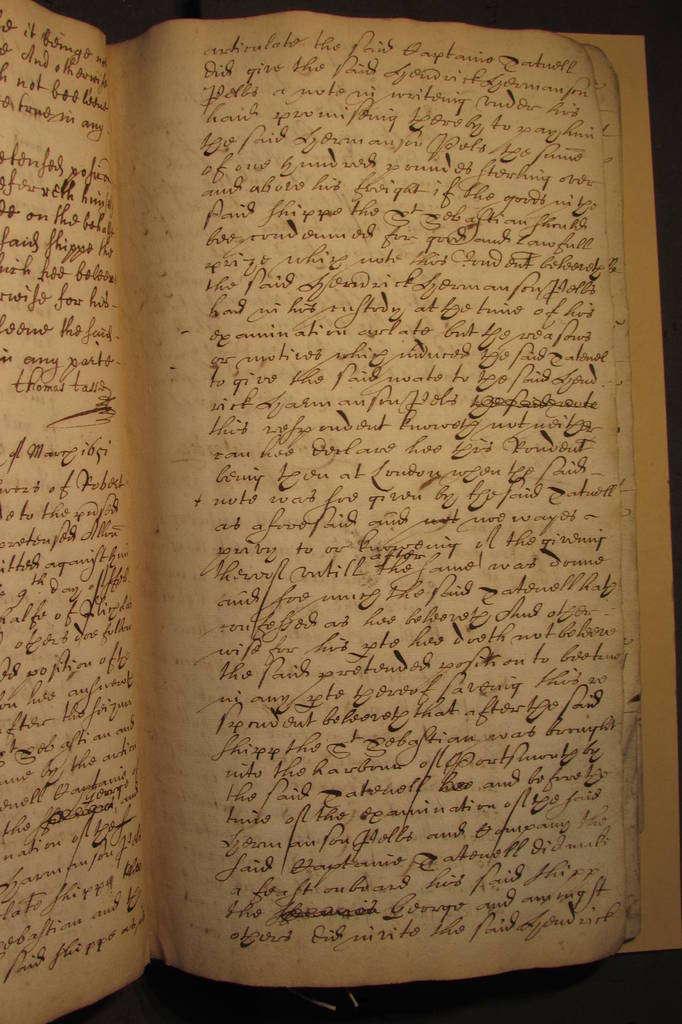 e it beinge no
e And otherwise
h not beeleeve
be true in any
etensed position
eferreth himse
de on the behal
said shippe the
uch hee beleev
rwise for his
leeve the said
in any parte
Thomas
of March 1651
wers of Robert
e to the pnsed
pretensed Allon
itted against him
e 9th day of ffeb
alfe of fflip
others doe follow
ed position of the
on hee answereth
after the seizure
St Sebastian and
me by the artic
tenell Captaine
the George and
nation of the
Harmanson Pels
late shipp
Sebastian and th
said shippe as
articulate the said Captaine Tatnell
did give the said Hendrick Hermanson
Pells a note in writeing under his
hand promiseing thereby to pay him
the said Hermanson Pels the summe
of one hundred poundes sterling over
and above his freight if the goods in the
said shippe the St Sebastian should
bee condemned for good and lawfull
prize which note this Rondent beleeveth
the said Hendrick Hermanson Pells
had in his custody at the time of his
examination arlate but the reasons
or motives which induced the said Tatenel
to give the said noate to the said Hend
rick Harmanson Pels the said note
this respondent knoweth not neither
can hee declare hee this Rondent
being then at London when the said
note was soe given by the said Tatnell
as aforesaid and not noe wayes
privy to or knoweing of the giveing
thereof untill after the same was donne
and soe much the said Tatenell hath
confessed as hee beleeveth And other
wise for his pte hee doeth not beleeve
the said pretended position to bee true
in any pte thereof saveing this re
spondent beleeveth that after the said
shipp the St Sebastian was brought
into the harbour of Portsmouth by
the said Tatenell hee and before the
time of the examination of the said
Hermanson Pells and Company the
said Captaine Tatenell did make
a feast on board his said shipp
the George and amongst
others did invite the said Hendrick